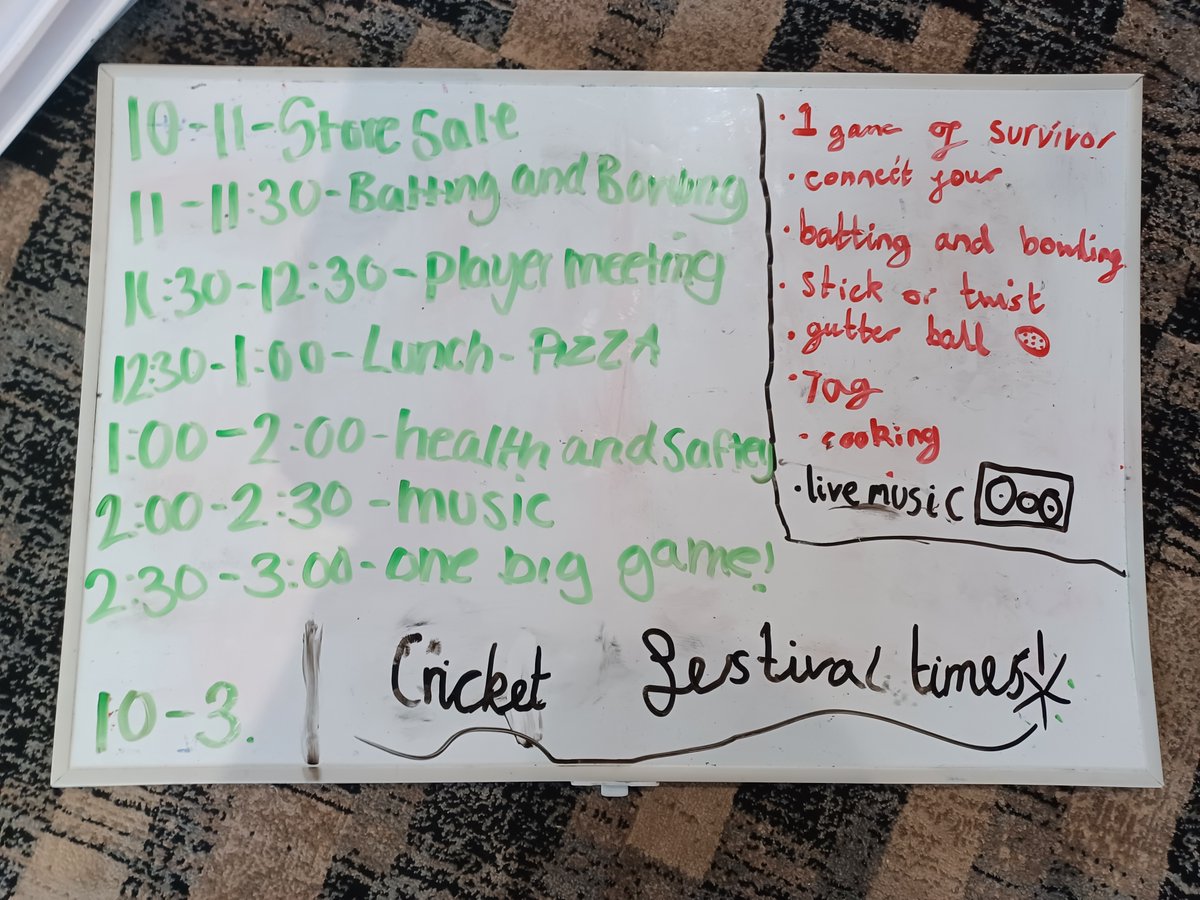 10-11-Store Sale
11-11:30-Batting and Bowling
11:30-12:30-player meeting
12:30-1:00-Lunch-PIZZA
1:00-2:00-health and saftey
2:00-2:30-music
2:30-3:00-one big game!
10-3.
· 1 game of survivor
· connect four
· batting and bowling
· stick or twist
· gutter ball
· Tag
· cooking
· live music
Cricket festival times